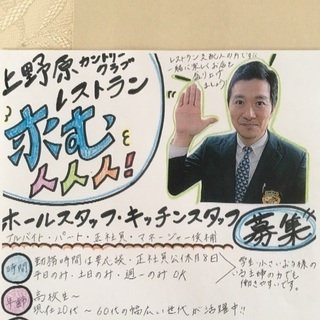 上野原カントリークラブ
レストラン
求む
人人人!
レストラン支配人の片寄です!
一緒に楽しくお店を
盛り上げ
ましょう
ホールスタッフ・キッチンスタッフ
募集
アルバイト・パート・正社員・マネージャー候補
時間
勤務時間は要相談・正社員公休月8日
平日のみ・土日のみ・週一のみOK
学生・小さいお子様の
いる主婦の方でも
働きやすいです。
年齢
高校生〜
現在20代〜60代の幅広い世代が活躍中!!